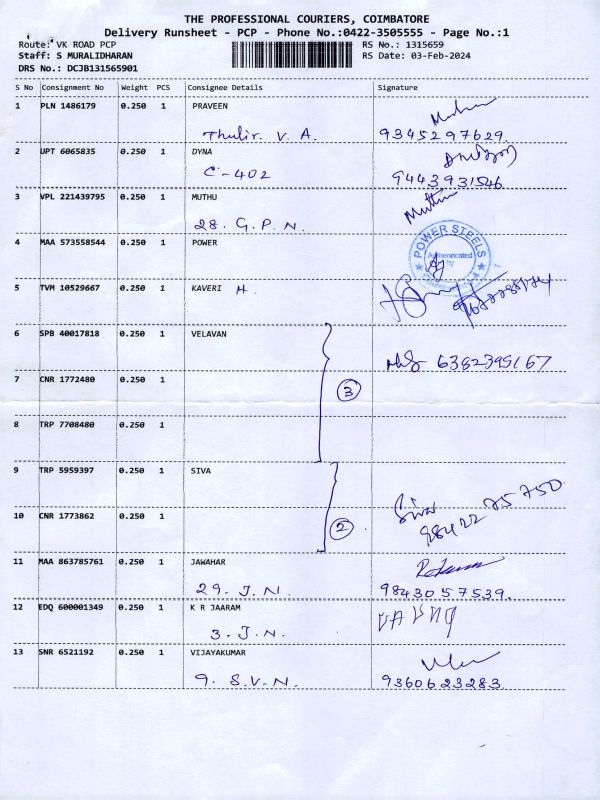 THE PROFESSIONAL COURIERS, COIMBATORE
Delivery Runsheet - PCP - Phone No.:0422-3505555 - Page No.:1
Route: VK ROAD PCP
RS No.: 1315659
Staff: S MURALIDHARAN
RS Date: 03-Feb-2024
DRS No.: DCJB131565901
S No Consignment No Weight PCS Consignee Details Signature
1 PLN 1486179 0.250 1 PRAVEEN
Thulir. V. A. 9345297629.
2 UPT 6065835 0.250 1 DYNA
C-402 9443931546
3 VPL 221439795 0.250 1 MUTHU Muthu
28. G.P.N.
4 MAA 573558544 0.250 1 POWER
POWER STEELS
Authenticated
by
5 TVM 10529667 0.250 1 KAVERI H.
6 SPB 40017818 0.250 1 VELAVAN
6382395167
7 CNR 1772480 0.250 1
3
8 TRP 7708480 0.250 1
9 TRP 5959397 0.250 1 SIVA
Siva
98422 75750
10 CNR 1773862 0.250 1
2
11 MAA 863785761 0.250 1 JAWAHAR
29. J.N. 9843057539.
12 EDQ 600001349 0.250 1 K R JAARAM
3. J.N.
13 SNR 6521192 0.250 1 VIJAYAKUMAR
9. S.V.N. 9360623283